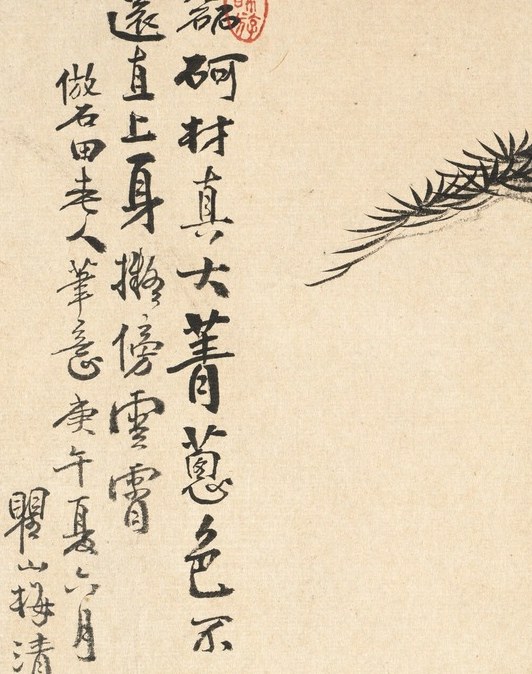 磊砢材真大菁蔥色不
還直上身擬傍雲霄
倣石田老人筆意庚午夏六月
瞿山梅清